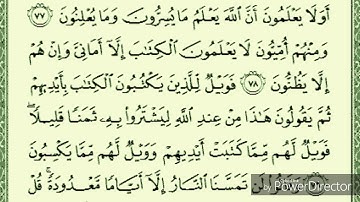 أَوَلَا يَعْلَمُونَ أَنَّ ٱللَّهَ يَعْلَمُ مَا يُسِرُّونَ وَمَا يُعْلِنُونَ ٧٧
وَمِنْهُمْ أُمِّيُّونَ لَا يَعْلَمُونَ ٱلْكِتَٰبَ إِلَّآ أَمَانِيَّ وَإِنْ هُمْ
إِلَّا يَظُنُّونَ ٧٨ فَوَيْلٌ لِّلَّذِينَ يَكْتُبُونَ ٱلْكِتَٰبَ بِأَيْدِيهِمْ
ثُمَّ يَقُولُونَ هَٰذَا مِنْ عِندِ ٱللَّهِ لِيَشْتَرُوا۟ بِهِۦ ثَمَنًا قَلِيلًا ۖ
فَوَيْلٌ لَّهُم مِّمَّا كَتَبَتْ أَيْدِيهِمْ وَوَيْلٌ لَّهُم مِّمَّا يَكْسِبُونَ
لَن تَمَسَّنَا ٱلنَّارُ إِلَّآ أَيَّامًا مَّعْدُودَةً ۚ قُلْ
PowerDirector